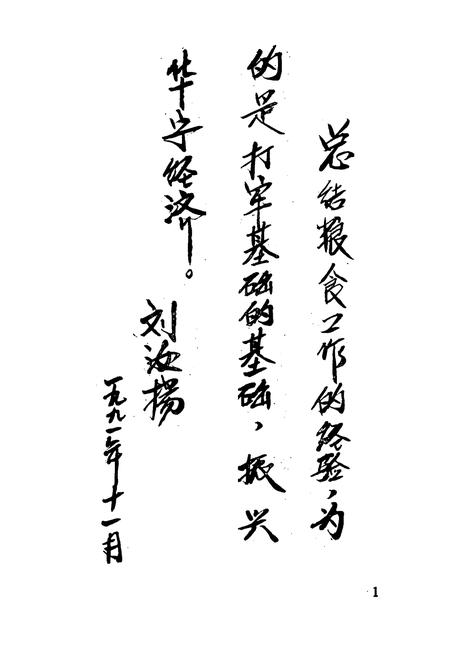 总结粮食工作的经验，为
的是打牢基础的基础，振兴
华宁经济。
刘汝扬
一九九一年十一月
1